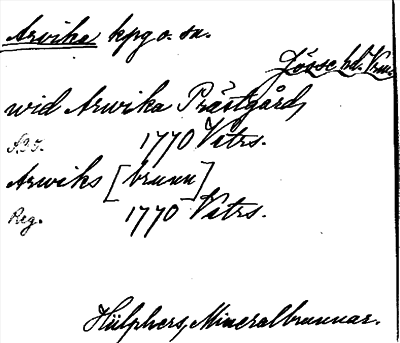 Arvika kpg o. sn.
Jösse hd. Vrm.
wid Arwika Prästgård,
A35. 1770 Vttrs.
Arwiks [brunn]
Reg. 1770 Vttrs.
Hülphers, Mineralbrunnar.